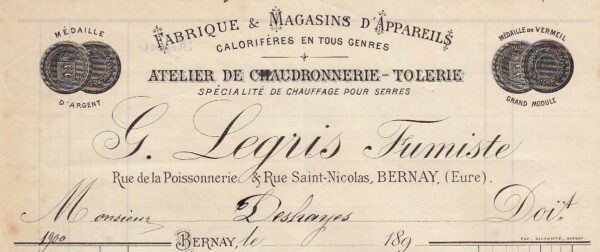 FABRIQUE & MAGASINS D'APPAREILS
CALORIFÈRES EN TOUS GENRES
MÉDAILLE
D'ARGENT
MÉDAILLE DE VERMEIL
GRAND MODULE
ATELIER DE CHAUDRONNERIE - TOLERIE
SPÉCIALITÉ DE CHAUFFAGE POUR SERRES
G. Legris Fumiste
Rue de la Poissonnerie & Rue Saint-Nicolas, BERNAY, (Eure).
Monsieur Deshayes Doit
1900 BERNAY, le 189